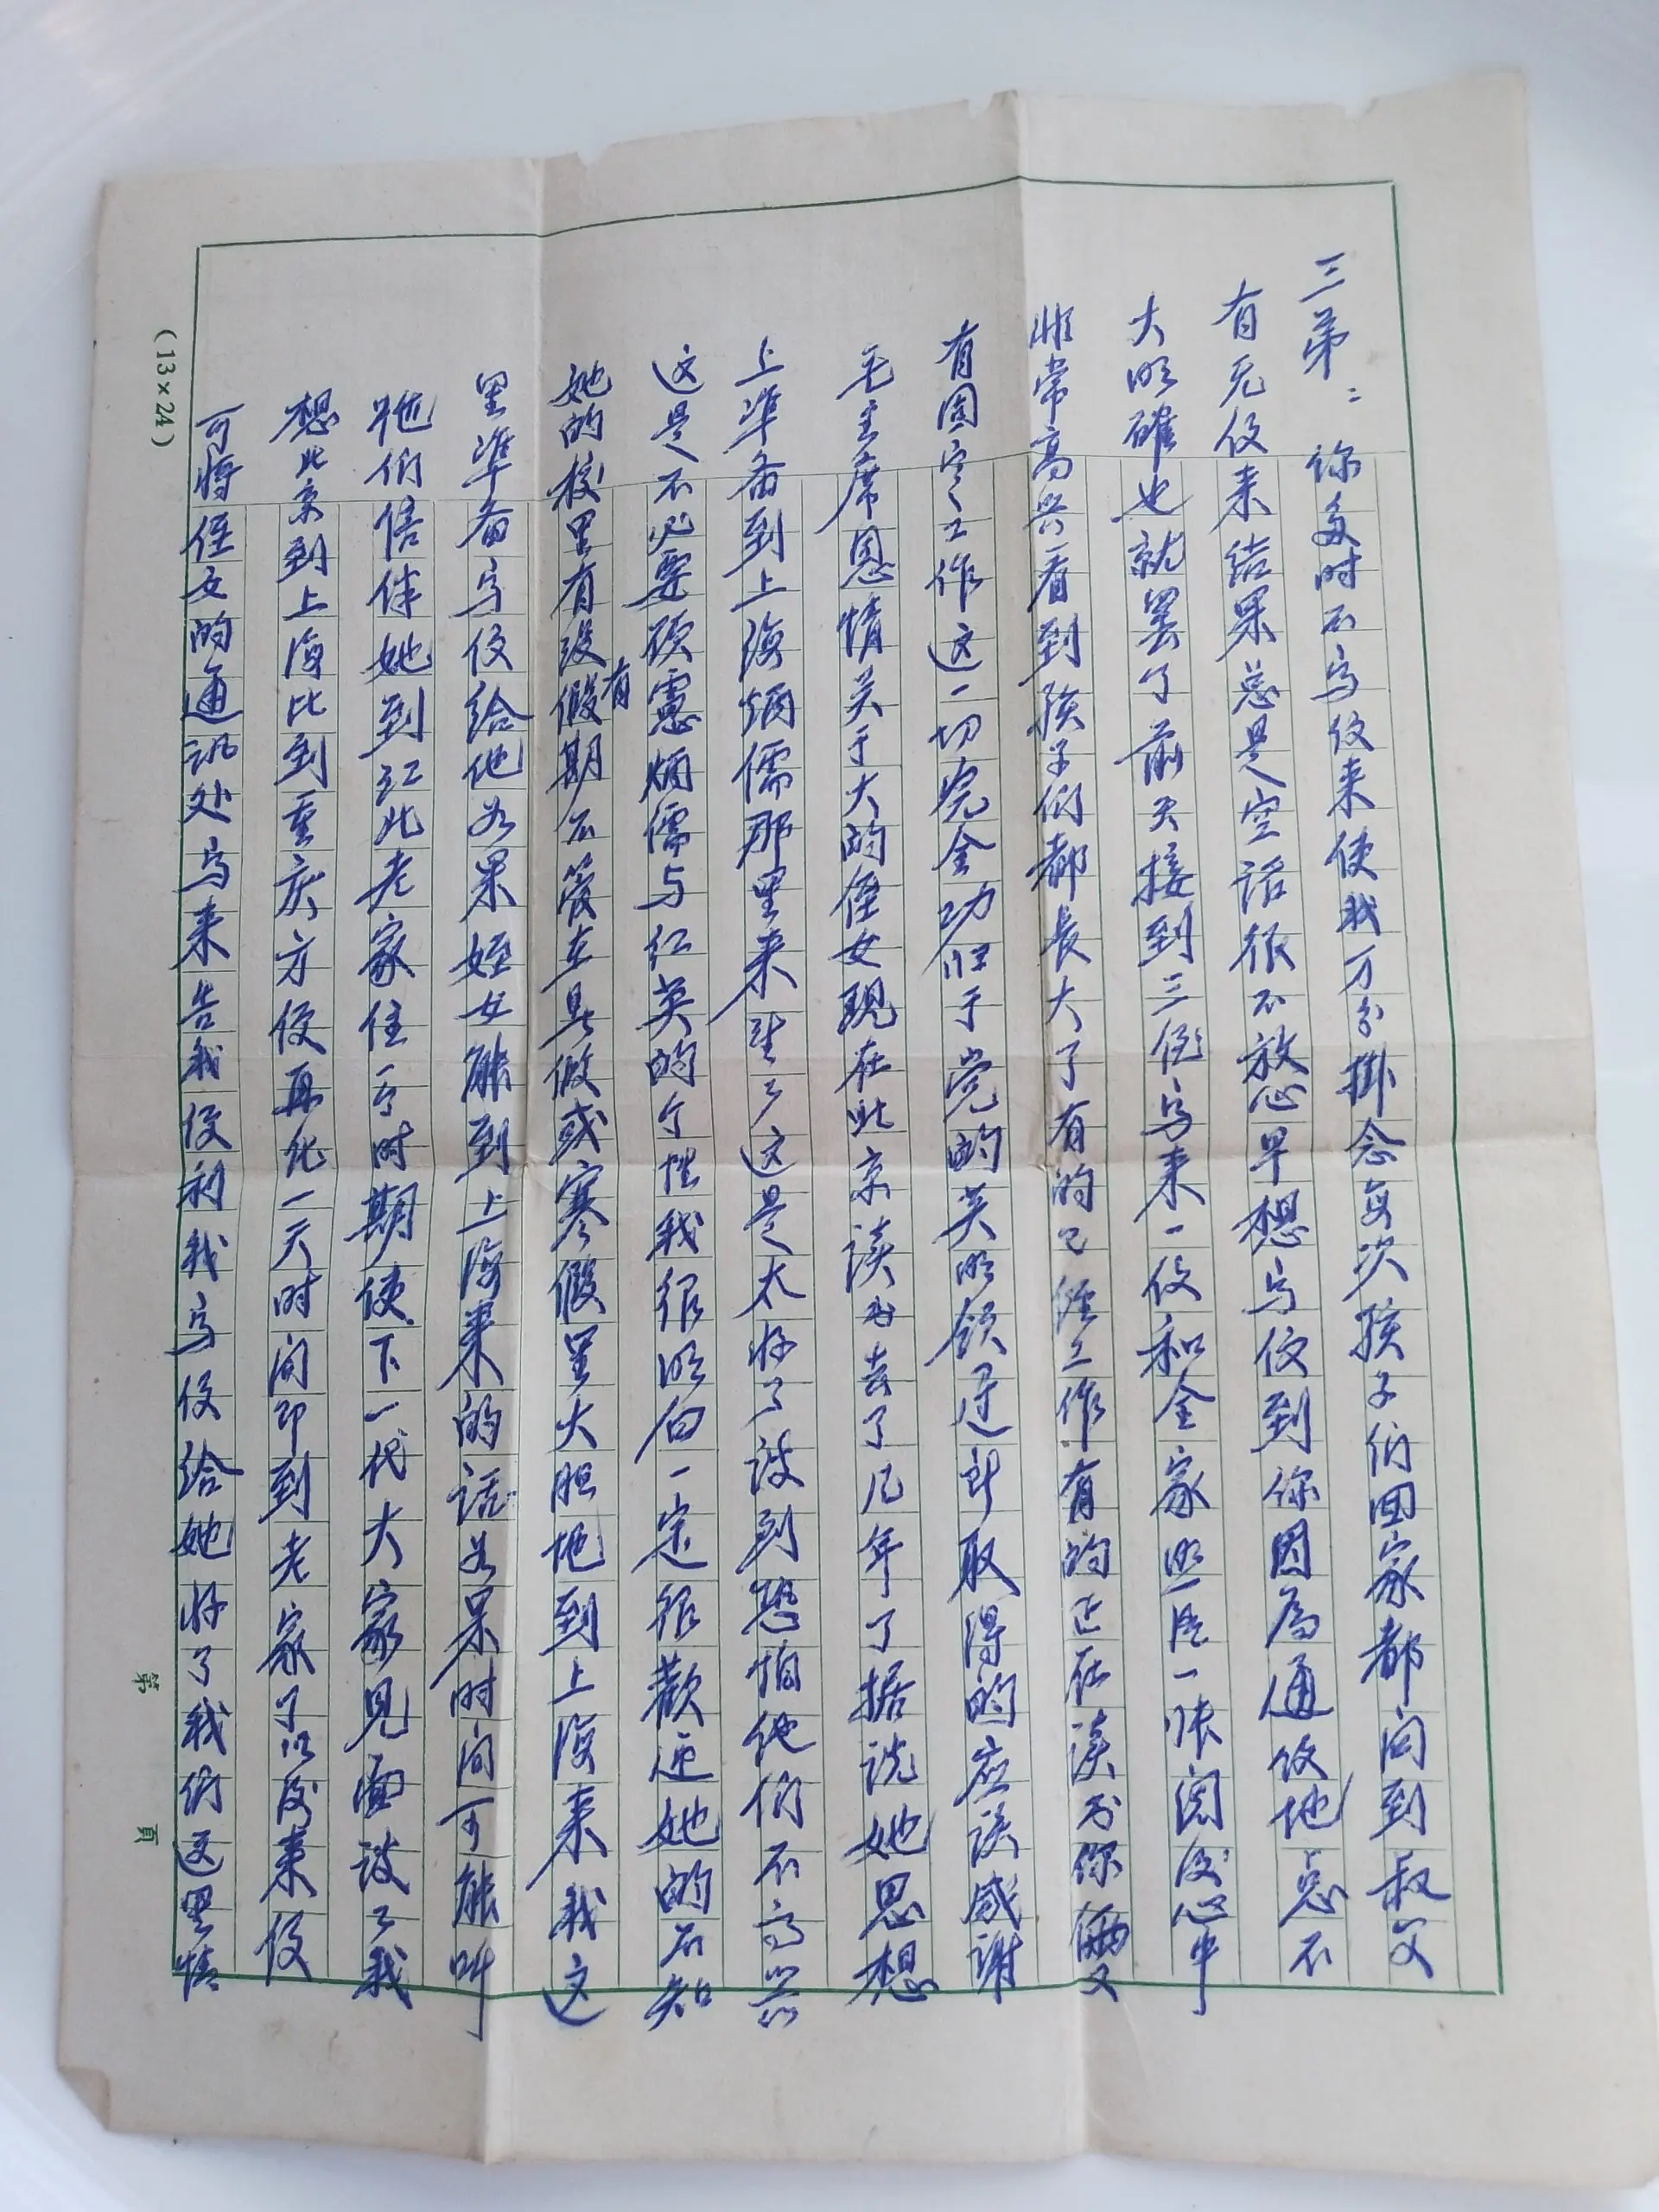 三弟：你多时不写信来使我万分掛念每次孩子们回家都问到叔父
有无信来结果总是空话很不放心早想写信到你因为通信地点不
大明確也就罢了前天接到三侄写来一信和全家照片一张阅后心中
非常高兴看到孩子们都长大了有的已经工作有的正在读书你俩又
有固定工作这一切完全功归于党的英明领导所取得的应该感谢
毛主席恩情关于大的侄女现在北京读书去了几年了据说她思想
上準备到上海炳儒那里来
这是太好了谈到恐怕他们不高兴
这是不必要顾慮炳儒与红英的个性我很明白一定很歡迎她的不知
她的校里有没有假期不管在暑假或寒假里大胆地到上海来我这
里準备写信给他如果姪女能到上海来的话如果时间可能叫
他们倍伴她到江北老家住一个时期使下一代大家见面谈谈我
想北京到上海比到重庆方便再化一天时间即到老家了以后来信
可将侄女的通讯处写来告我便利我写信给她好了我们这里情
(13×24)
第 頁